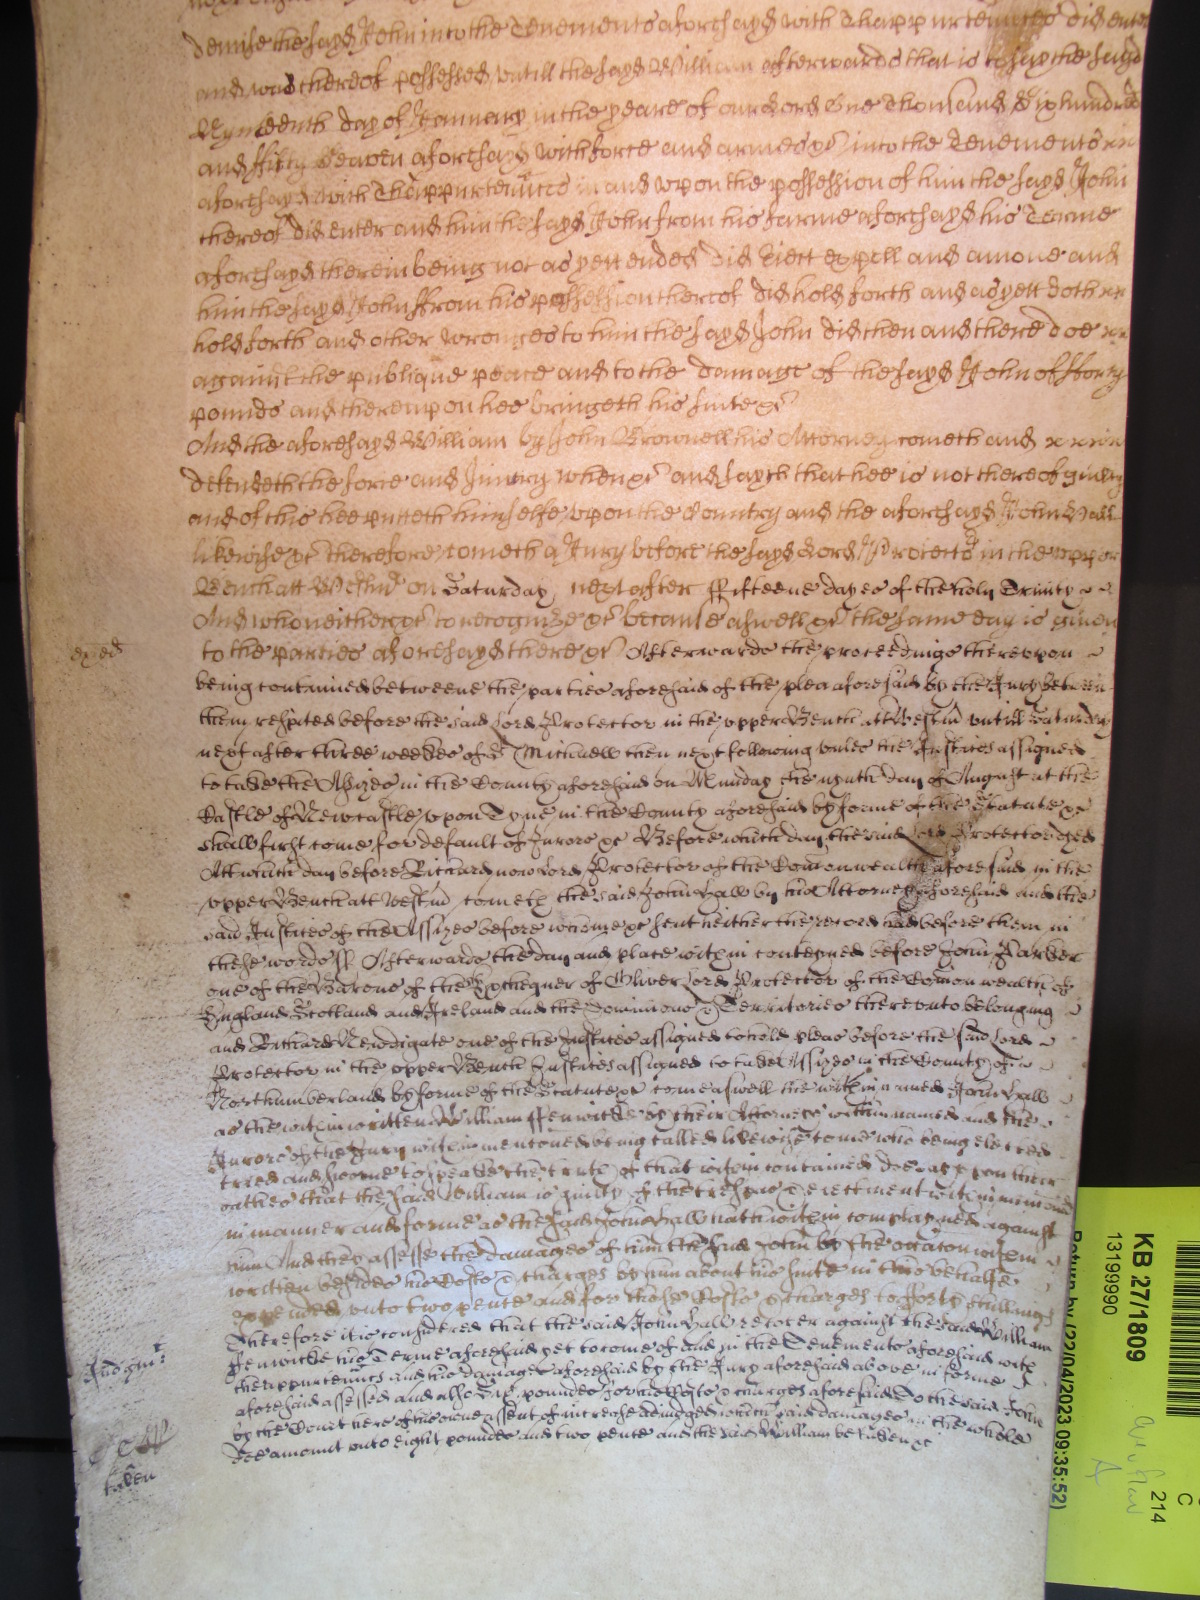 demise the sayd John into the Tenements aforesayd with Thappurtenñces did enter
and was thereof possessed vntill the sayd William afterwards that is to say the sayd
Nynteenth day of January in the yeare of our Lord One Thousand Six hundred
and ffifty Seaven aforesayd with force and armes &c into the Tenements
aforesayd with Thappurtenñces in and vpon the possession of him the sayd John
thereof did enter and him the sayd John from his farme aforesayd his Terme
aforesayd therein being not as yett ended did Eiect expell and amove and
him the sayd John ffrom his possession thereof did hold forth and as yett doth
hold forth and other wronges to him the sayd John did then and there doe
against the publique peace and to the damage of the sayd John of fforty
pounds and thereupon hee bringeth his suite &c
And the aforesayd William by John Brownell his Attorney cometh and
defendeth the force and Iniury when &c and sayth that hee is not thereof guilty
and of this hee putteth himselfe vpon the Country and the aforesayd John Hall
likewise &c therefore cometh a Jury before the sayd Lord Protector in the vpper
Bench att Westm̃ on Saturday next after ffifteene dayes of the holy Trinity
And who neither &c to recognize &c because aswell &c the same day is given
exed
to the parties aforesayd there &c Afterwards the proceedings therevpon
being contained betweene the parties aforesaid of the plea aforesaid by the Jury betwixt
them respited before the said Lord Protector in the vpper Bench att Westm̃ vntill Saturday
next after three weekes of St Michaell then next following vnles the Justices assigned
to take the Assizes in the County aforesaid on Munday the nynth day of August at the
Castle of Newcastle vpon Tyne in the County aforesaid by forme of the Statute &c
shall first come for default of Jurors &c Before which day the said Lord Protector dyed
Att which day before Richard now Lord Protector of the Comonwealth aforesaid in the
vpper Bench att Westm̃ cometh the said John Hall by his Attorney aforesaid and the
said Justices of the Assizes before whome &c sent hither their record had before them in
these words ss Afterwards the day and place within contayned before John Parker
one of the Barons of the Exchequer of Oliver Lord Protector of the Comonwealth of
England Scotland and Ireland and the Dominions & Territories therevnto belonging
and Richard Newdigate one of the Justices assigned to hold pleas before the said Lord
Protector in the vpper Bench Justices assigned to take Assizes in the County of
Northumberland by forme of the Statute &c come aswell the within named John Hall
as the within written William Fenwicke by their Attorneys within named and the
Jurors of the Jury within mentioned being called likewise come who being elected
tried and sworne to speake the truth of that within contained doe say vpon their
oathes that the said William is guilty of the trespas & eiectment within
in manner and forme as the said John Hall hath within complayned against
him And they assesse the damages of him the said John by the occasion within
written besides his Costs & charges by him about his suite in this behalfe
expended vnto two pence and for those Costs & charges to fforty shillings
Therefore it is considered that the said John Hall recover against the said William
Judgmt
Fenwicke his Terme aforesaid yet to come of and in the Tenements aforesaid with
the appurtenncs and his damages aforesaid by the Jury aforesaid above in forme
aforesaid assessed and also Six pounds for his Costs & charges aforesaid to the said John
by the Court here of his owne assent of increase adiudged which said damages in the whole
doe amount vnto eight pounds and two pence and the said William be taken &c
taken
KB 27/1809
13199990
Return by (22/04/2023 09:35:52)
214
C
A